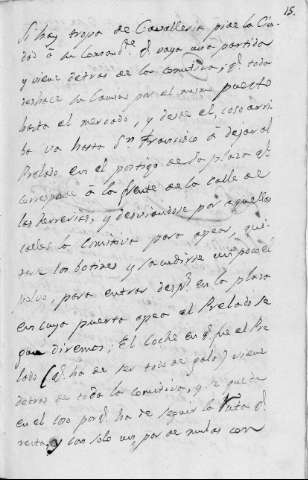 15.
Si hay tropa de Cavalleria pide la Ciu
dad á su Comand.te q.e vaya una partida
y viene detras de la comitiva; q.e toda
deshace la Camas por el mismo puesto
hasta el mercado, y desde el coso arri
ba va hasta S.n Francisco á dejar al
Prelado en el portigo de la plaza q.e
corresponde á la frente de la calle de
las herrerias, y desviandose por aquellas
calles la Comitiva para apea, qui
tarse los botines y sacudirse un poco el
polvo, para entrar desp.s en la plaza
en cuya puerta apea el Prelado se
gun diremos; El Coche en q.e fue el Pre
lado (q.e ha de ser tiro de gala) viene
detras de toda la comitiva, y se queda
en el coso porq.e ha de seguir la Ruta q.e
resta, y con solo un par de mulas con